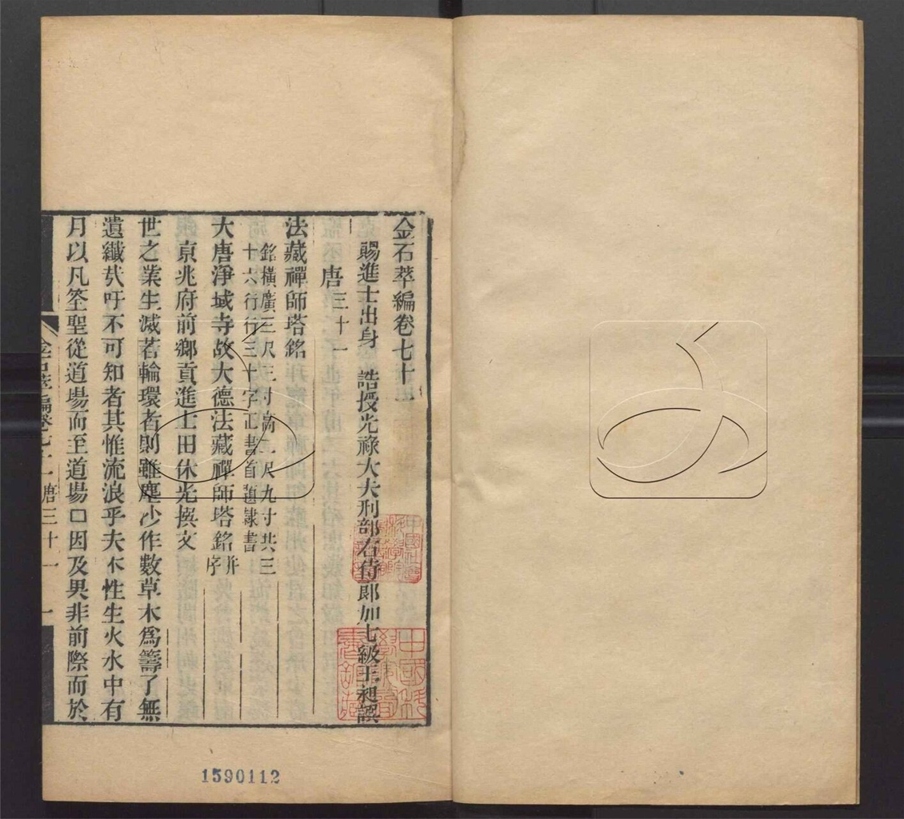 金石萃編卷七十一
賜進士出身 誥授光祿大夫刑部右侍郎加七級王昶譔
唐三十一
法藏禪師塔銘
銘橫廣三尺三寸高二尺九寸共三
十六行行三十字正書首題隸書
大唐淨域寺故大德法藏禪師塔銘并序
京兆府前鄉貢進士田休光撰文
世之業生滅若輪環者則雖塵沙作數草木爲籌了無
遺纖弋吁不可知者其惟流浪乎夫木性生火水中有
月以凡筌聖從道場而至道場口因及果非前際而於
金石萃編卷七十一 唐三十一 一
1590112